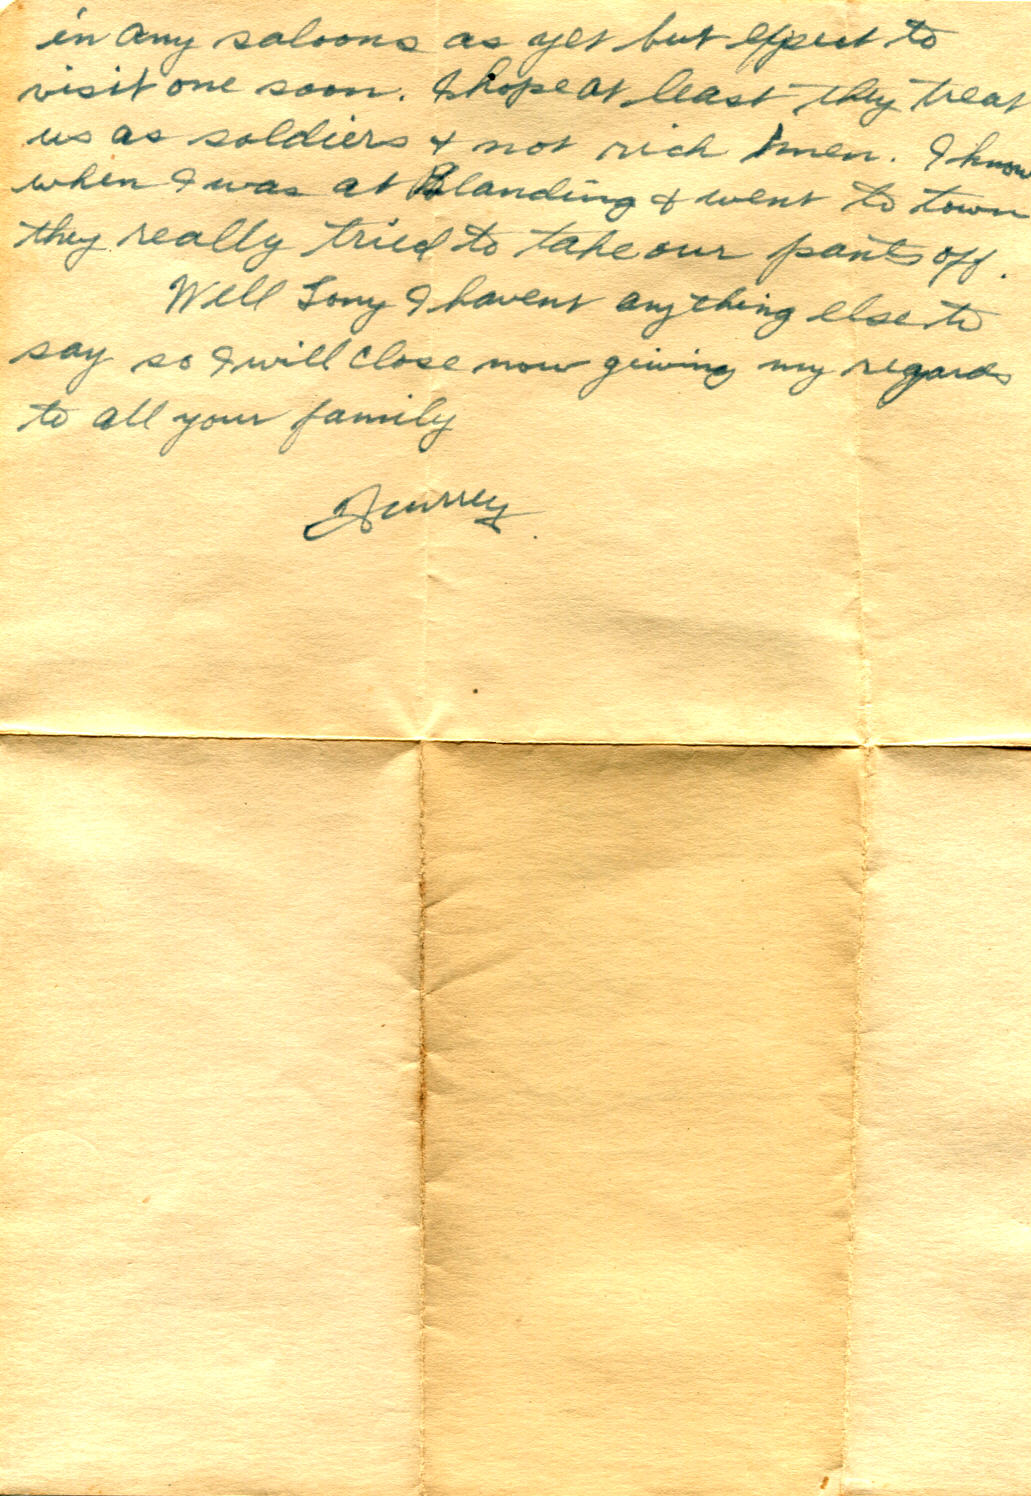 in any saloons as yet but expect to
visit one soon. I hope at least they treat
us as soldiers & not rich men. I know
when I was at Blanding & went to town
they really tried to take our pants off.
Well Tony I havent anything else to
say so I will close now giving my regards
to all your family